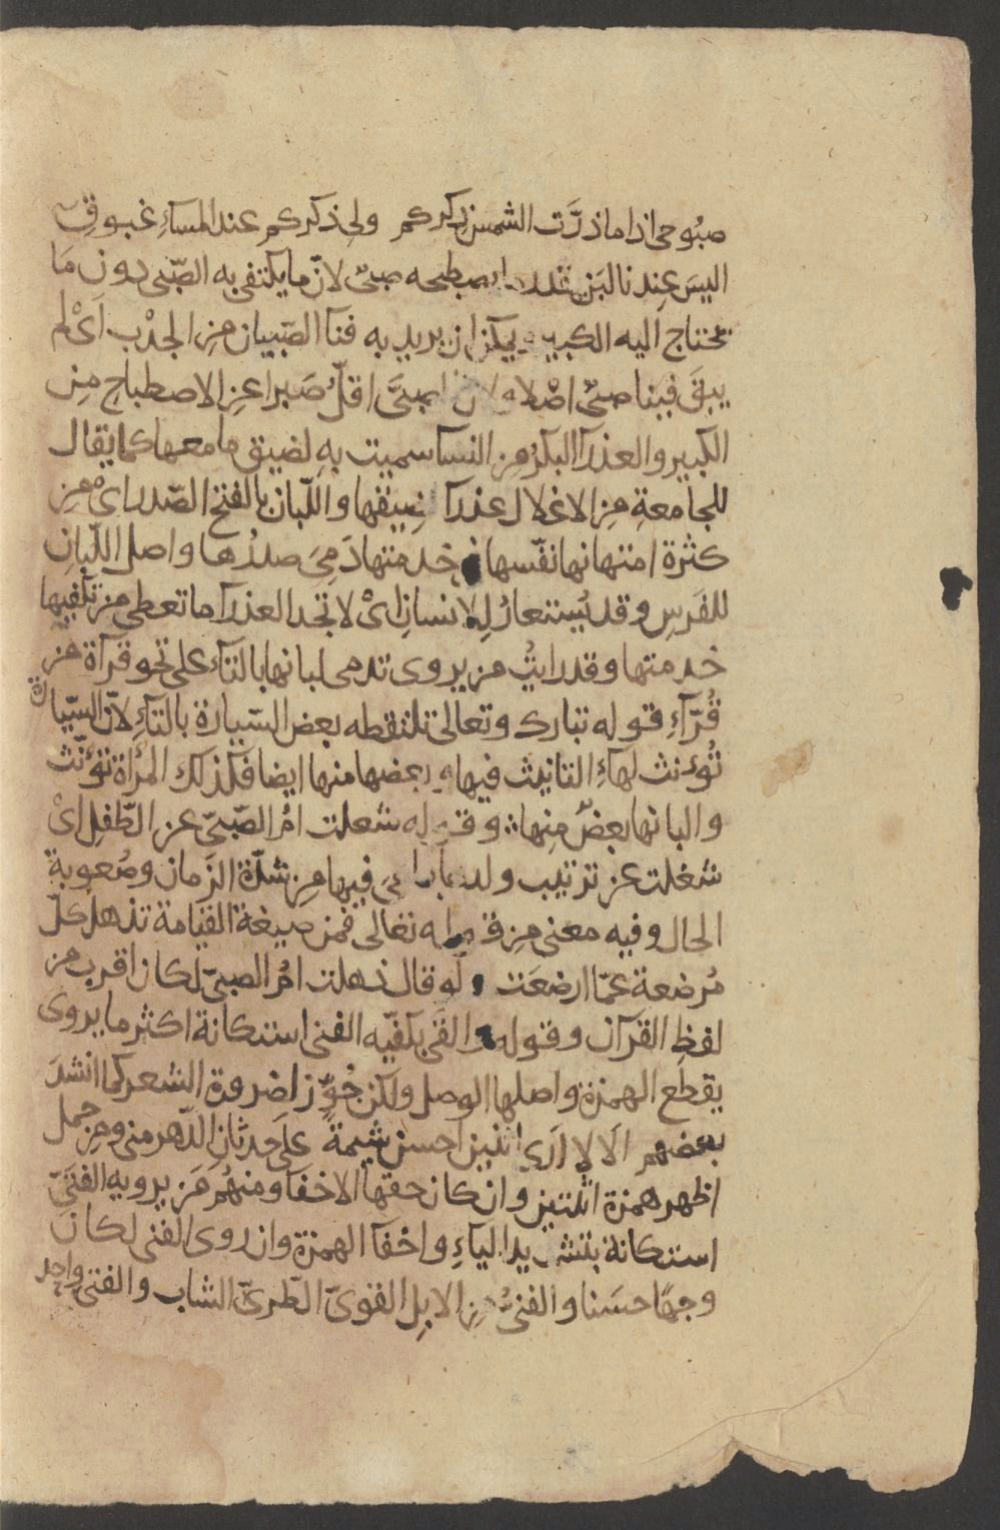 صبُوحى اذا ما ذرَّت الشمس ذكركم ولى ذكركم عند المسآءِ غبوق
اليسَ عِندنا لبَن نصطبحه صبىٌ لانّ ما يكتفى به الصّبى دون مَا
تحتاج اليه الكبير يمكن ان يريد به فنآ الصّبيان مِن الجذب اىْ لم
يبقَ فينا صبىٌ اصْلا لان الصبىَّ اقلُّ صَبرا عِن الاصطباح مِن
الكبير والعذرآ البكرُ مِن النسا سميت بهِ لضيق ما معها كما يقال
للجامعةِ مِن الاغلال عذرآ لضيقها واللّبان بالفتح الصّدر اىْ مِن
كثرة امتهانها نفسها فى خدمتها دَمِىَ صدرُها واصل اللّبانِ
للفرَسِ وقد يُستعارُ لِلانسان اىْ لا تجد العذرآ ما تعطى من تكفيها
خدمتها وقد رايتُ من يروى تدمى لبانها بالتآء على نحو قرآة من
قُرّآءِ قوله تبارك وتعالى تلتقطه بعض السّيارة بالتآءِ لانّ السّيارة
تُوءنث لهآءِ التانيث فيها وبعضها منها ايضا فكذلك المرْاة توءنّث
والبانها بعضٌ مِنها وقوله شغلت امُ الصّبىّ عن الطّفلِ اىْ
شغلت عن ترتيب ولدها فيها مِن شدّة الزّمان وصُعوبة
الحال وفيه معنى مِن قوله تعالى فمن صيغة القيامة تذهل كلّ
مُرضعة عمّا ارضعَت ولَو قال ذهلت امُ الصبىّ لكان اقرب من
لفظ القرآن وقوله والقى بكفّيه الفتى استكانة اكثر ما يروى
يقطَع الهمزة واصلها الوصل ولكن جُوّز لضرورة الشعر كما انشدَ
بعضهم الا لا ارَى اثنين احسن شيمةً على حدثانِ الدّهر منى ومِن جمل
اظهر همزة اثنين وان كان حقها الاخفا ومنهُم مَن يرويه الفتىّ
استكانة بتشديد اليآءِ واخفآ الهمزة وان روى الفنى لكان
وجهًا حسَنا والفتىُّ مِن الابِل القوىّ الطّرىّ الشاب والفتى واحد